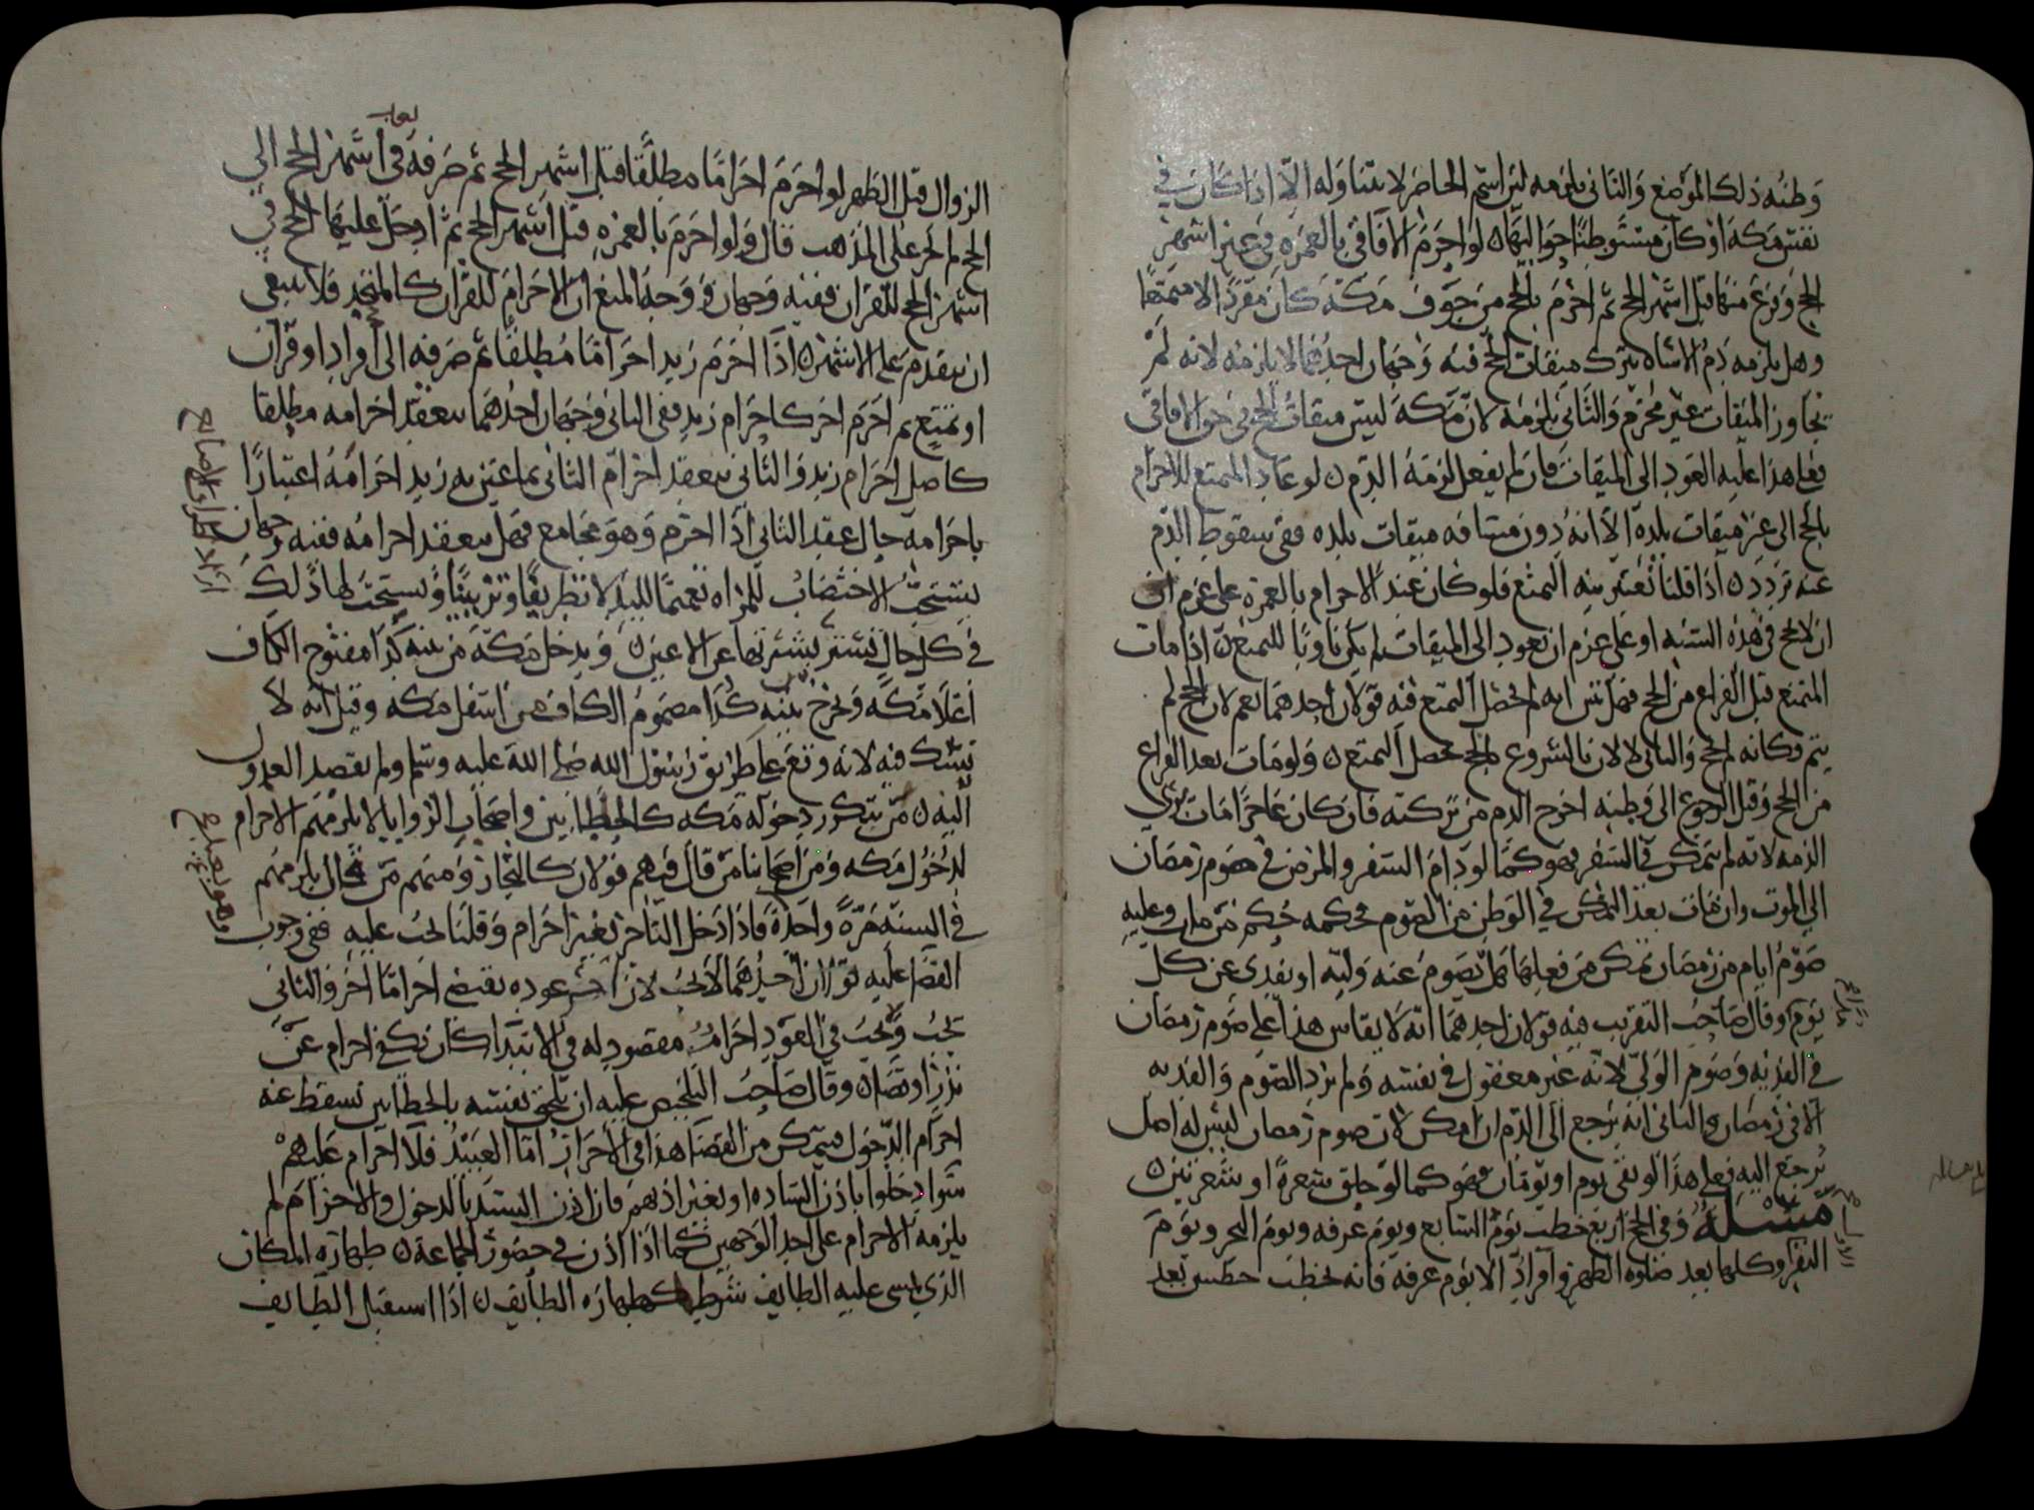 وطنه ذلك الموضع والثاني يلزمه ليس اسم الحاضر لا يتناوله الا اذا كان في
نفس مكة او كان مستوطنا حواليها ن لو احرم الافاقي بالعمرة في غير اشهر
الحج وفرغ منها قبل اشهر الحج ثم احرم بالحج من جوف مكة كان مفردا لا متمتعا
وهل يلزمه دم الاساه بترك ميقات الحج فيه وجهان احدهما لا يلزمه لانه لم
يجاوز الميقات غير محرم والثاني يلزمه لان مكة ليس ميقات الحج في حق الافاقي
فعلى هذا عليه العود الى الميقات فان لم يفعل لزمه الدم ن لو عاد المتمتع للاحرام
بالحج الى غير ميقات بلده الا انه دون مسافه ميقات بلده ففي سقوط الدم
عنه تردد ن اذا قلنا تعتبر نية التمتع فلو كان عند الاحرام بالعمرة على عزم ان
ان لا يحج في هذه السنه او على عزم ان يعود الى الميقات لم يكن ناويا للتمتع ن اذا مات
المتمتع قبل الفراغ من الحج فهل نتبين انه لم يحصل التمتع فيه قولان احدهما نعم لان الحج لم
يتم وكانه لم يحج والثاني لا لان بالشروع بالحج حصل التمتع ن ولو مات بعد الفراغ
من الحج وقبل الرجوع الى وطنه اخرج الدم من تركته فان كان عاجزا مات بري
الذمه لانه لم يتمكن في السفر فهو كما لو دام السفر والمرض في صوم رمضان
الى الموت وان مات بعد التمكن في الوطن من الصوم فحكمه حكم من مات وعليه
صوم ايام من رمضان تمكن من فعلها هل يصوم عنه وليه او يفدى عن كل
يوم وقال صاحب التقريب فيه قولان احدهما انه لا يقاس هذا على صوم رمضان
في الفديه وصوم الولي لانه غير معقول في نفسه ولم يرد الصوم والفديه
الا في رمضان والثاني انه يرجع الى الدم ان امكن لان صوم رمضان ليس له اصل
يرجع اليه فعلى هذا لو بقي يوم او يومان فهو كما لو حلق شعرة او شعرتين ن
مسئلة وفي الحج اربع خطب يوم السابع ويوم عرفه ويوم النحر ويوم
النفر وكلها بعد صلوة الظهر وافراد الا يوم عرفه فانه يخطب خطبتين بعد
الزوال قبل الظهر لو احرم احراما مطلقا قبل اشهر الحج ثم صرفه في اشهر الحج الى
الحج لم يجز على المذهب قال ولو احرم بالعمرة قبل اشهر الحج ثم ادخل عليها الحج في
اشهر الحج للقران ففيه وجهان ووجه المنع ان الاحرام للقران كالمتحد فلا ينبغي
ان يتقدم على الاشهر ن اذا احرم زيد احراما مطلقا ثم صرفه الى افراد او قران
او تمتع ثم احرم اخر كاحرام زيد ففي الثاني وجهان احدهما ينعقد احرامه مطلقا
كاصل احرام زيد والثاني ينعقد احرام الثاني بما عين به زيد احرامه اعتبارا
باحرامه حال عقد الثاني اذا احرم وهو مجامع فهل ينعقد احرامه ففيه وجهان
يستحب الاختضاب للمراه تعميما لليد لا تطريفا وتزيينا ويستحب لها ذلك
في كل حال فيستر بشرتها عن الاعين ن ويدخل مكة من ثنية كدا مفتوح الكاف
اعلا مكه ويخرج من ثنية كدا مضموم الكاف من اسفل مكه وقيل انه لا
نسك فيه لانه وقع على طريق رسول الله صلى الله عليه وسلم ولم يقصد العدول
اليه ن من يتكرر دخوله مكه كالحطابين واصحاب الروايا لا يلزمهم الاحرام
لدخول مكه ومن اصحابنا من قال فيهم قولان كالتجار ومنهم من قال يلزمهم
في السنه مرة واحدة فاذا دخل التاجر بغير احرام وقلنا يجب عليه ففي وجوب
القضا عليه قولان احدهما لا يجب لان عوده يقتضي احراما اخر والثاني
يجب ويجب في العود احرام مقصود له في الابتدا كان يكفي احرام عن
نذر او قضا ن وقال صاحب التلخيص عليه ان يلحق نفسه بالحطابين لسقط عنه
احرام الدخول فيتمكن من القضا هذا في الاحرار اما العبيد فلا احرام عليهم
سوا دخلوا باذن الساده او بغير اذنهم فان اذن السيد بالدخول والاحرام لم
يلزمه الاحرام على احد الوجهين كما اذا اذن في حضور الجماعة ن طهاره المكان
الذي يمشي عليه الطايف شرط كطهاره الطايف ن اذا استقبل الطايف